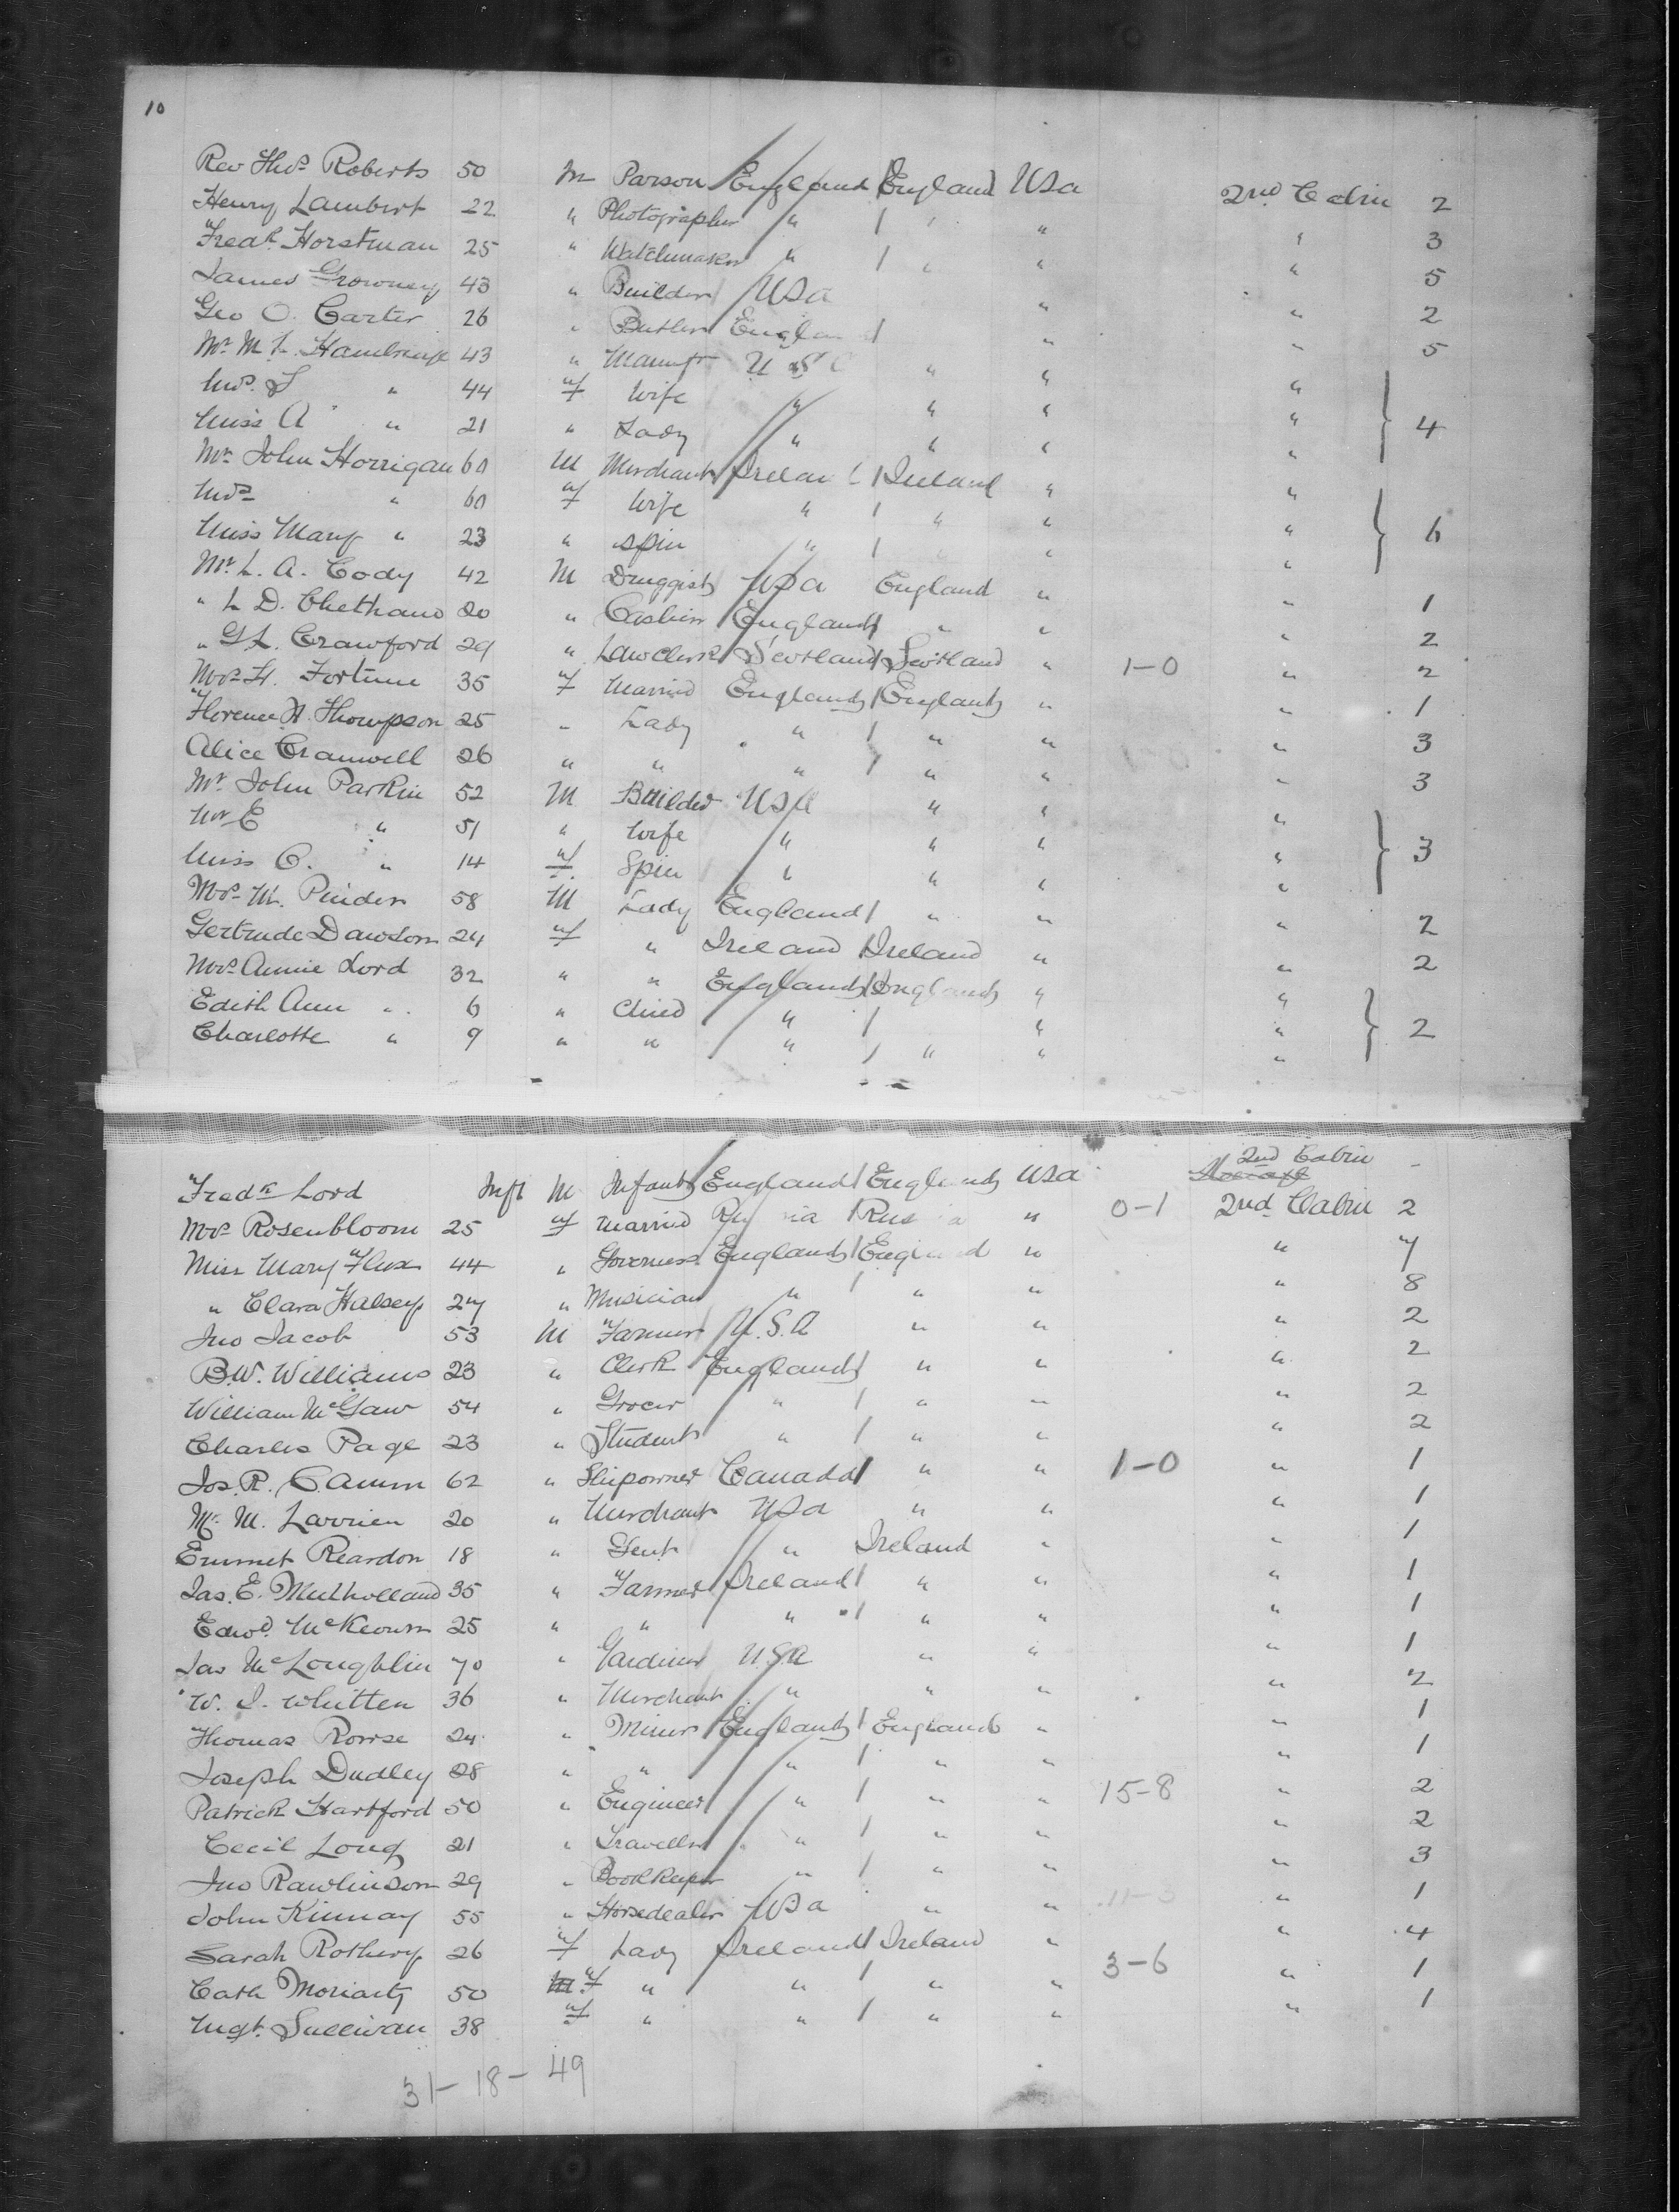 10
Rev Thos Roberts 50 M Parson England England USA 2nd Cabin 2
Henry Lambert 22 " Photographer " " " " 3
Fredk Horstman 25 " Watchmaker " " " " 5
James Growney 43 " Builder USA " " 2
Geo O. Carter 26 " Butler England " " 5
Mr M L. 43 " Manufr U S " " "
Mrs. S " 44 f Wife " " " " 4
Miss A " 21 " Lady " " " "
Mr John Horrigan 60 M Merchant Ireland Ireland " "
Mrs " 60 f Wife " " " " 6
Miss Mary " 23 " Spin " " " "
Mr L. A. Cody 42 M Druggist USA England " " 1
" L D. Chetham 20 " Cashier England " " " 2
" G L. Crawford 29 " Law Clerk Scotland Scotland " 1-0 " 2
Mrs H. Fortune 35 f Married England England " " 1
Florence H. Thompson 25 " Lady " " " " 3
Alice Cranwell 26 " " " " " " 3
Mr John Parkin 52 M Builder USA " " "
Mr E " 51 " Wife " " " " 3
Miss C. " 14 f Spin " " " "
Mrs M. Pinder 58 M Lady England " " " 2
Gertrude Dawson 24 f " Ireland Ireland " " 2
Mrs Annie Lord 32 " " England England " "
Edith Ann " 6 " Child " " " 2
Charlotte " 9 " " " " " "
Fredk Lord Inft M Infant England England USA 2nd Cabin -
Mrs Rosenbloom 25 f Married Russia Russia " 0-1 2nd Cabin 2
Miss Mary Flux 44 " Governess England England " " 7
" Clara Halsey 27 " Musician " " " " 8
Jno Jacob 53 M Farmer U.S.A " " " 2
B.W. Williams 23 " Clerk England " " " 2
William McGaw 54 " Grocer " " " " 2
Charles Page 23 " Student " " " " 2
Jos. R. Camm 62 " Shipowner Canada " " 1-0 " 1
Mr. M. Larrieu 20 " Merchant USA " " " 1
Emmet Reardon 18 " Gent " Ireland " " 1
Jas. E. Mulholland 35 " Farmer Ireland " " " 1
Edwd. McKeown 25 " " " " " " 1
Jas McLoughlin 70 " Gardiner U.S.A " " " 1
W. J. Whitten 36 " Merchant " " " " 2
Thomas Rowse 24 " Miner England England " " 1
Joseph Dudley 28 " " " " " " 1
Patrick Hartford 50 " Engineer " " " 15-8 " 2
Cecil Long 21 " Traveller " " " " 2
Jno Rawlinson 29 " Bookkeeper " " " " 3
John Kinnay 55 " Horsedealer USA " " " 1
Sarah Rothery 26 f Lady Ireland Ireland " " 4
Cath Moriarty 50 f " " " " 3-6 " 1
Mgt. Sullivan 38 f " " " " " 1
31-18-49